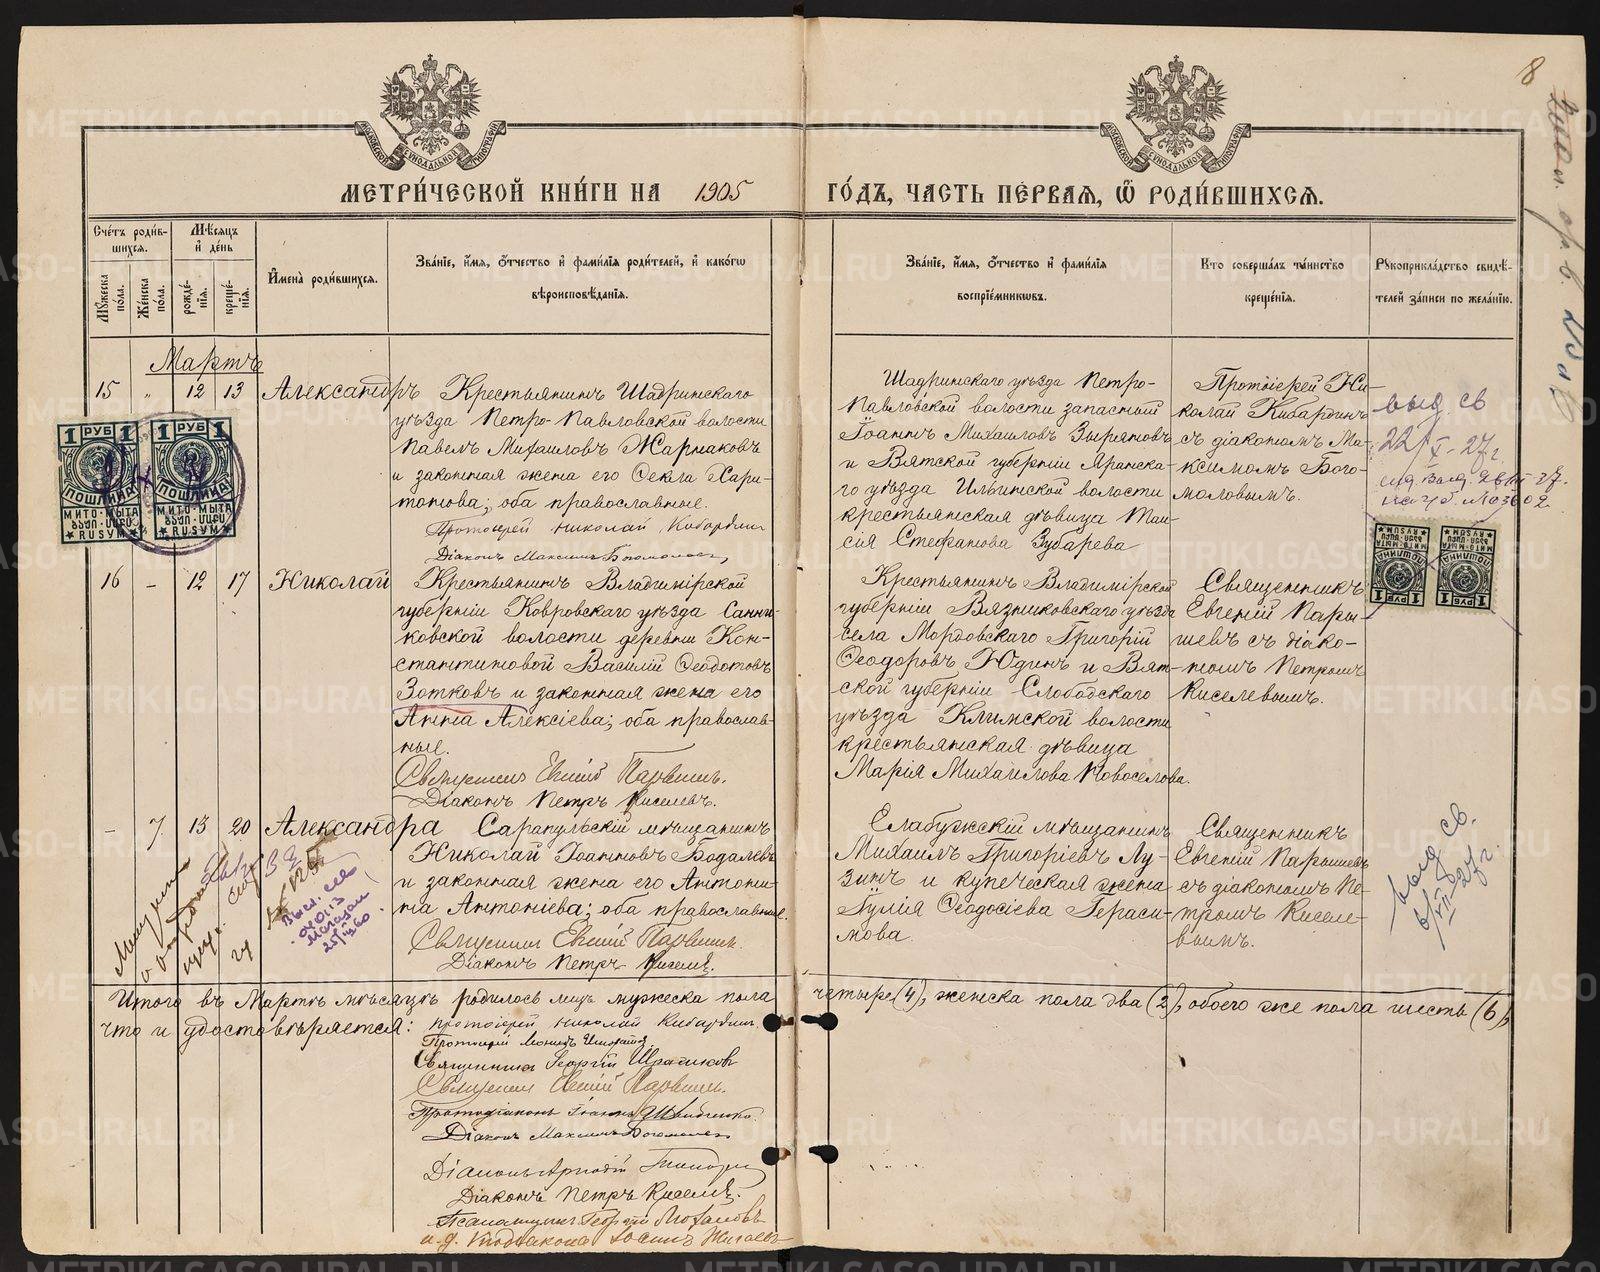 8
МЕТРИ́ЧЕСКОЙ КНИ́ГИ НА 1905 ГО́ДЪ, ЧА́СТЬ ПЕ́РВАЯ, Ѿ РОДИ́ВШИХСЯ.
Сче́тъ роди́в-
шихся.
Мꙋжеска по́ла.
Же́нска по́ла.
Мѣ́сяцъ и де́нь
рожде́-
нїя.
креще́-
нїя.
Имена̀ роди́вшихся.
Зва́нїе, и́мя, о́тчество и фами́лїя роди́телей, и како́гѡ
вѣроисповѣ́данїя.
Зва́нїе, и́мя, о́тчество и фами́лїя
воспрїе́мниковъ.
Кто соверша́лъ та́инство
креще́нїя.
Рꙋкоприкла́дство свидѣ́-
телей за́писи по жела́нїю.
Мартъ
15 " 12 13 Александръ
Крестьянинъ Шадринскаго
уѣзда Петро-Павловской волости
Павелъ Михаиловъ Жарнаковъ
и законная жена его Секла Хари-
тонова; оба православные.
Протоіерей Николай Кибардин
Діаконъ Максимъ Богомолов
Шадринскаго уѣзда Петро-
Павловской волости запасный
Іоаннъ Михаиловъ Зыряновъ
и Вятской губерніи Яранска-
го уѣзда Ильинской волости
крестьянская дѣвица Таи-
сія Стефанова Зубарева
Протоіерей Ни-
колай Кибардинъ
съ діакономъ Ма-
ксимомъ Бого-
моловымъ.
выд. св
22/X-27г.
1 РУБ 1
ПОШЛИНА
МИТО·МЫТА
RUSУM
1 РУБ 1
ПОШЛИНА
МИТО·МЫТА
RUSУM
16 - 12 17 Николай
Крестьянинъ Владимірской
губерніи Ковровскаго уѣзда Санни-
ковской волости деревни Кон-
стантиновой Василій Ѳеодотовъ
Зотковъ и законная жена его
Анна Алексіева; оба православ-
ные.
Священникъ Евгеній Парышевъ.
Діаконъ Петръ Киселевъ.
Крестьянинъ Владимірской
губерніи Вязниковскаго уѣзда
села Мордовскаго Григорій
Ѳеодоровъ Юдинъ и Вят-
ской губерніи Слободскаго
уѣзда Климской волости
крестьянская дѣвица
Марія Михаилова Новоселова.
Священникъ
Евгеній Пары-
шевъ съ діако-
номъ Петромъ
Киселевымъ.
- 7 13 20 Александра
Сарапульскій мѣщанинъ
Николай Іоанновъ Бодалевъ
и законная жена его Антони-
на Антоніева; оба православные.
Священникъ Евгеній Парышевъ.
Діаконъ Петръ Киселев.
Елабужскій мѣщанинъ
Михаилъ Григоріевъ Лу-
зинъ и купеческая жена
Іулія Ѳеодосіева Гераси-
мова.
Священникъ
Евгеній Парышевъ
съ діакономъ Пе-
тромъ Киселе-
вымъ.
выд св.
6/VII-27г.
Итого въ Мартѣ мѣсяцѣ родилось лицъ мужеска пола четыре (4), женска пола два (2), обоего же пола шесть (6),
что и удостовѣряется: Протоіерей Николай Кибардин.
Священникъ Георгій
Священникъ Евгеній Парышевъ.
Протодіаконъ Іоаннъ
Діаконъ Максимъ Богомолов
Діаконъ
Діаконъ Петръ Киселев.
Псаломщикъ Георгій
METRIKI.GASO-URAL.RU